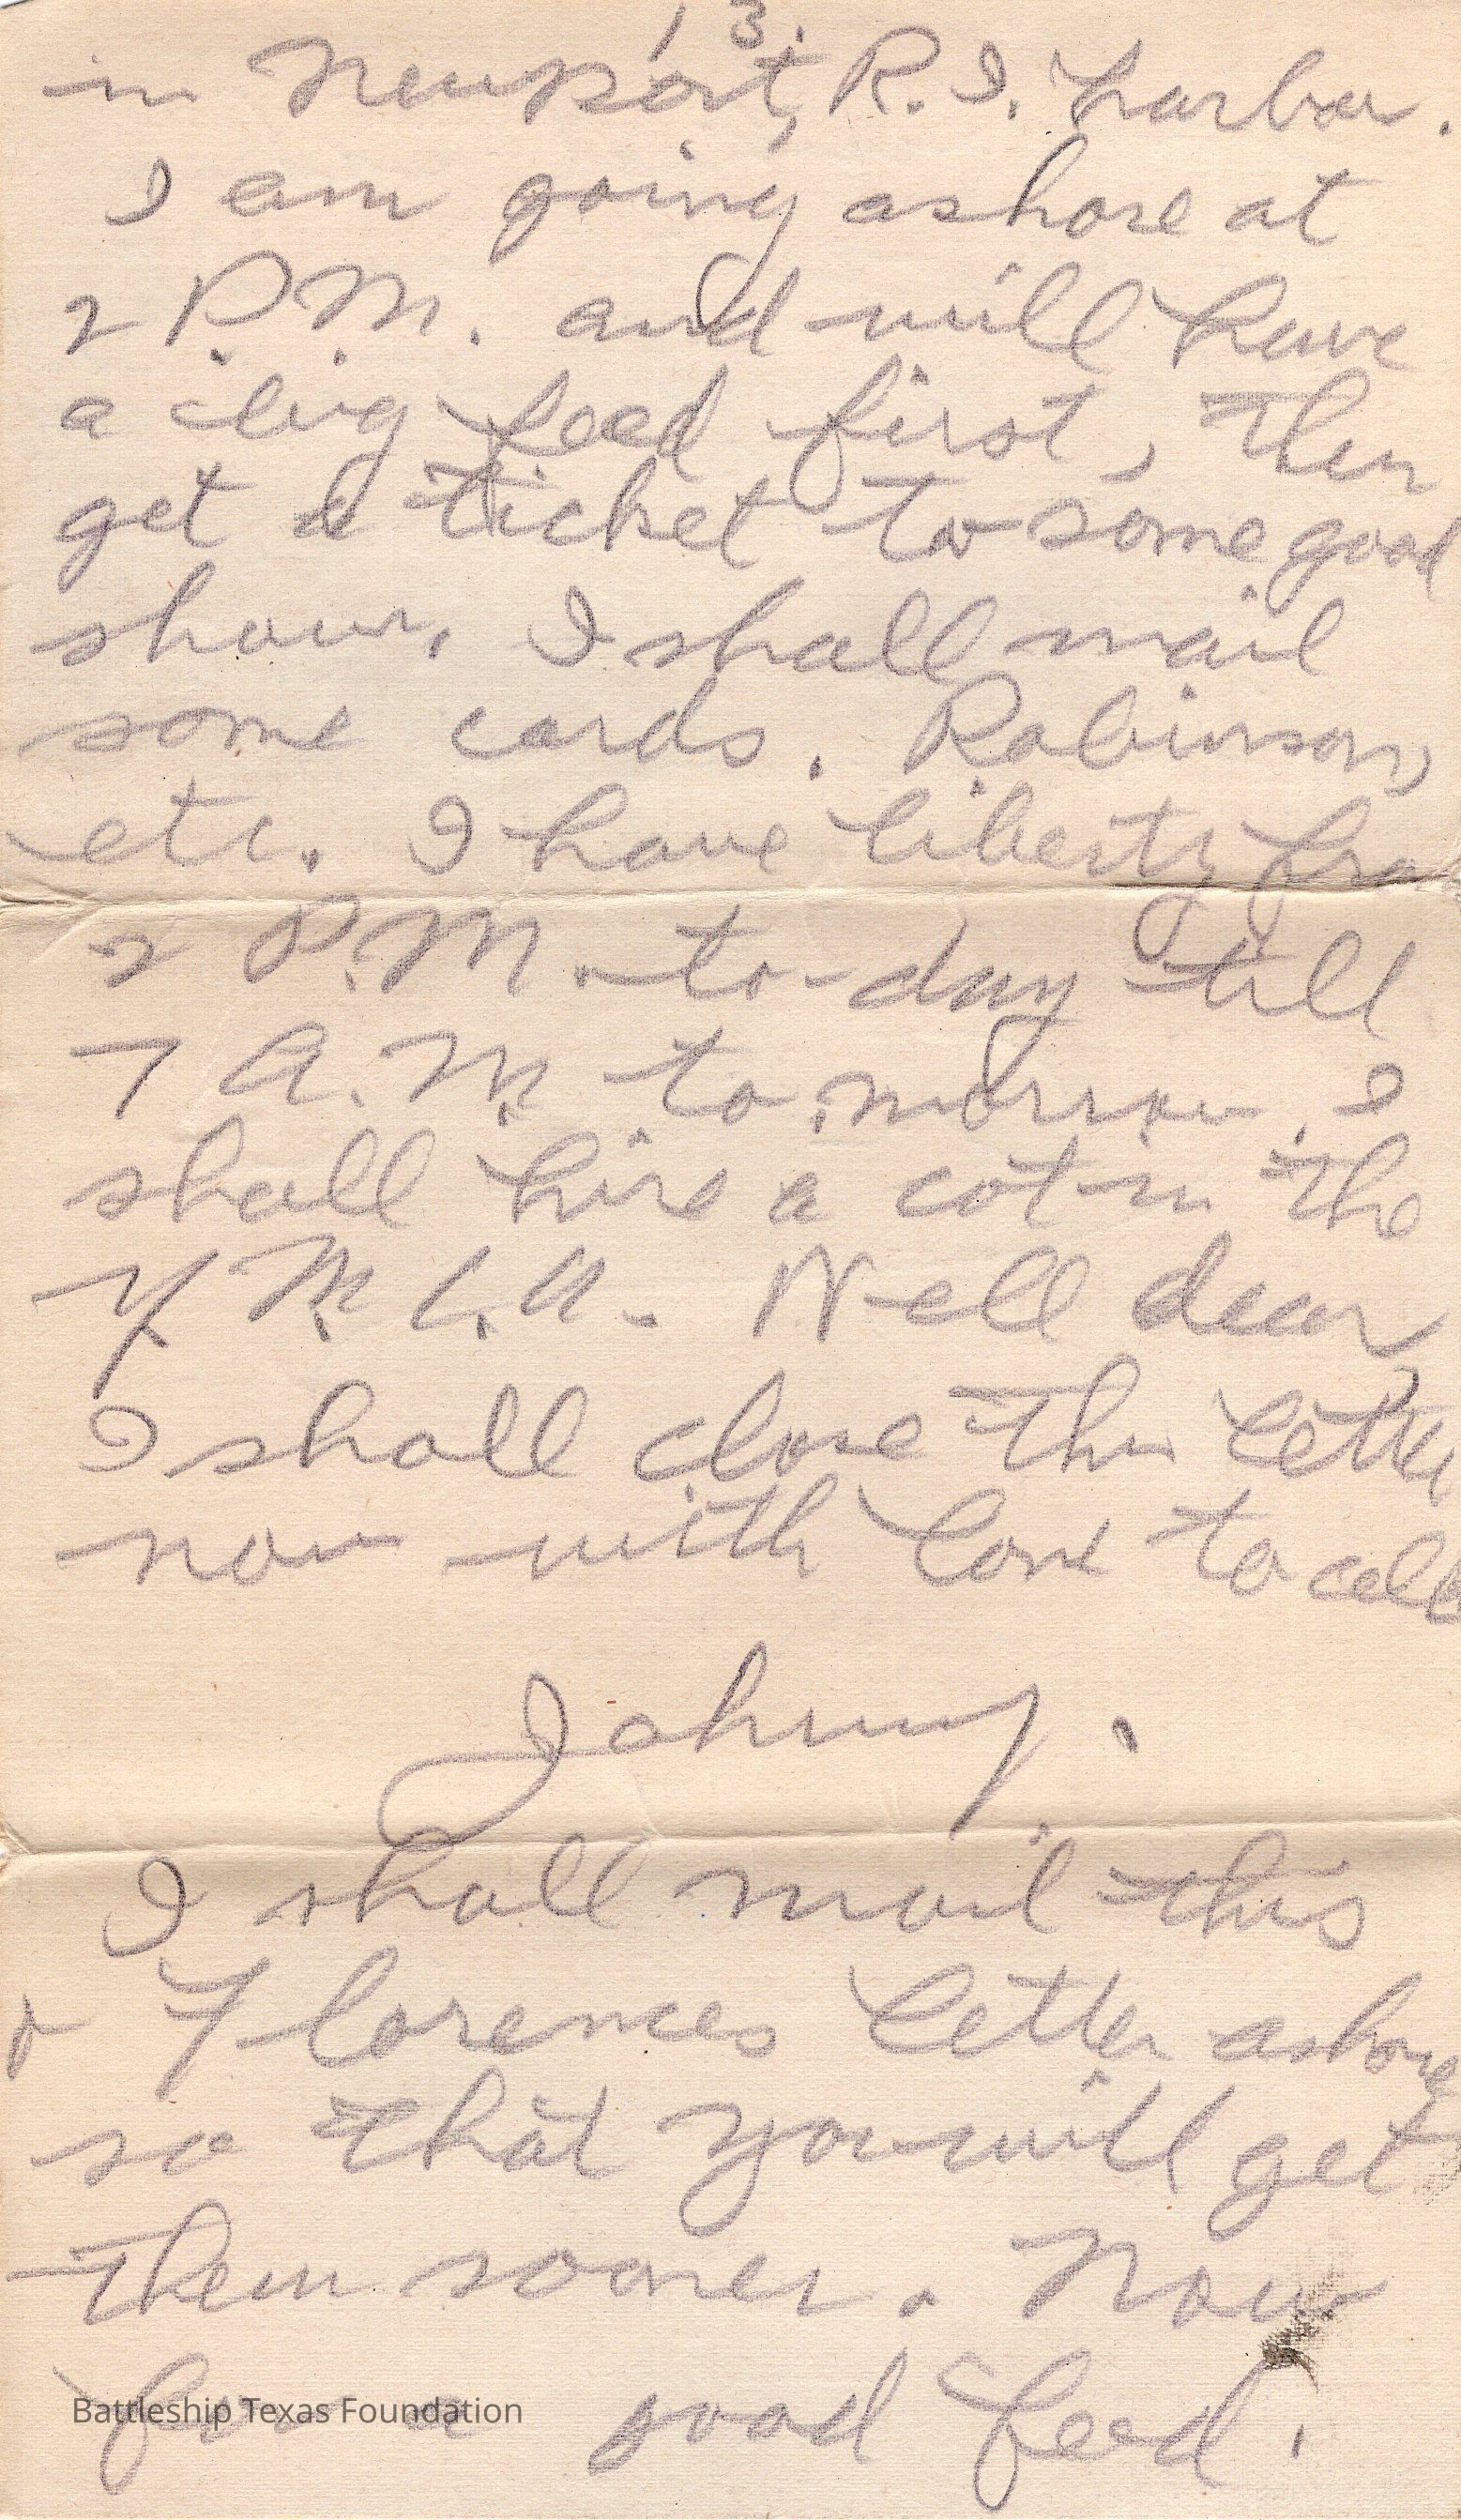 13.
in Newport, R. I. harbor.
I am going ashore at
2 P.M. and will have
a big feed first, then
get a ticket to some good
show. I shall mail
some cards. Robinson,
etc. I have liberty from
2 P.M. to-day till
7 A.M. to-morrow. I
shall hire a cot in the
Y.M.C.A. Well dear,
I shall close this letter
now with love to all
Johnny.
I shall mail this
& Florences letter ashore
so that you will get
them sooner. Now
for a good feed.
Battleship Texas Foundation